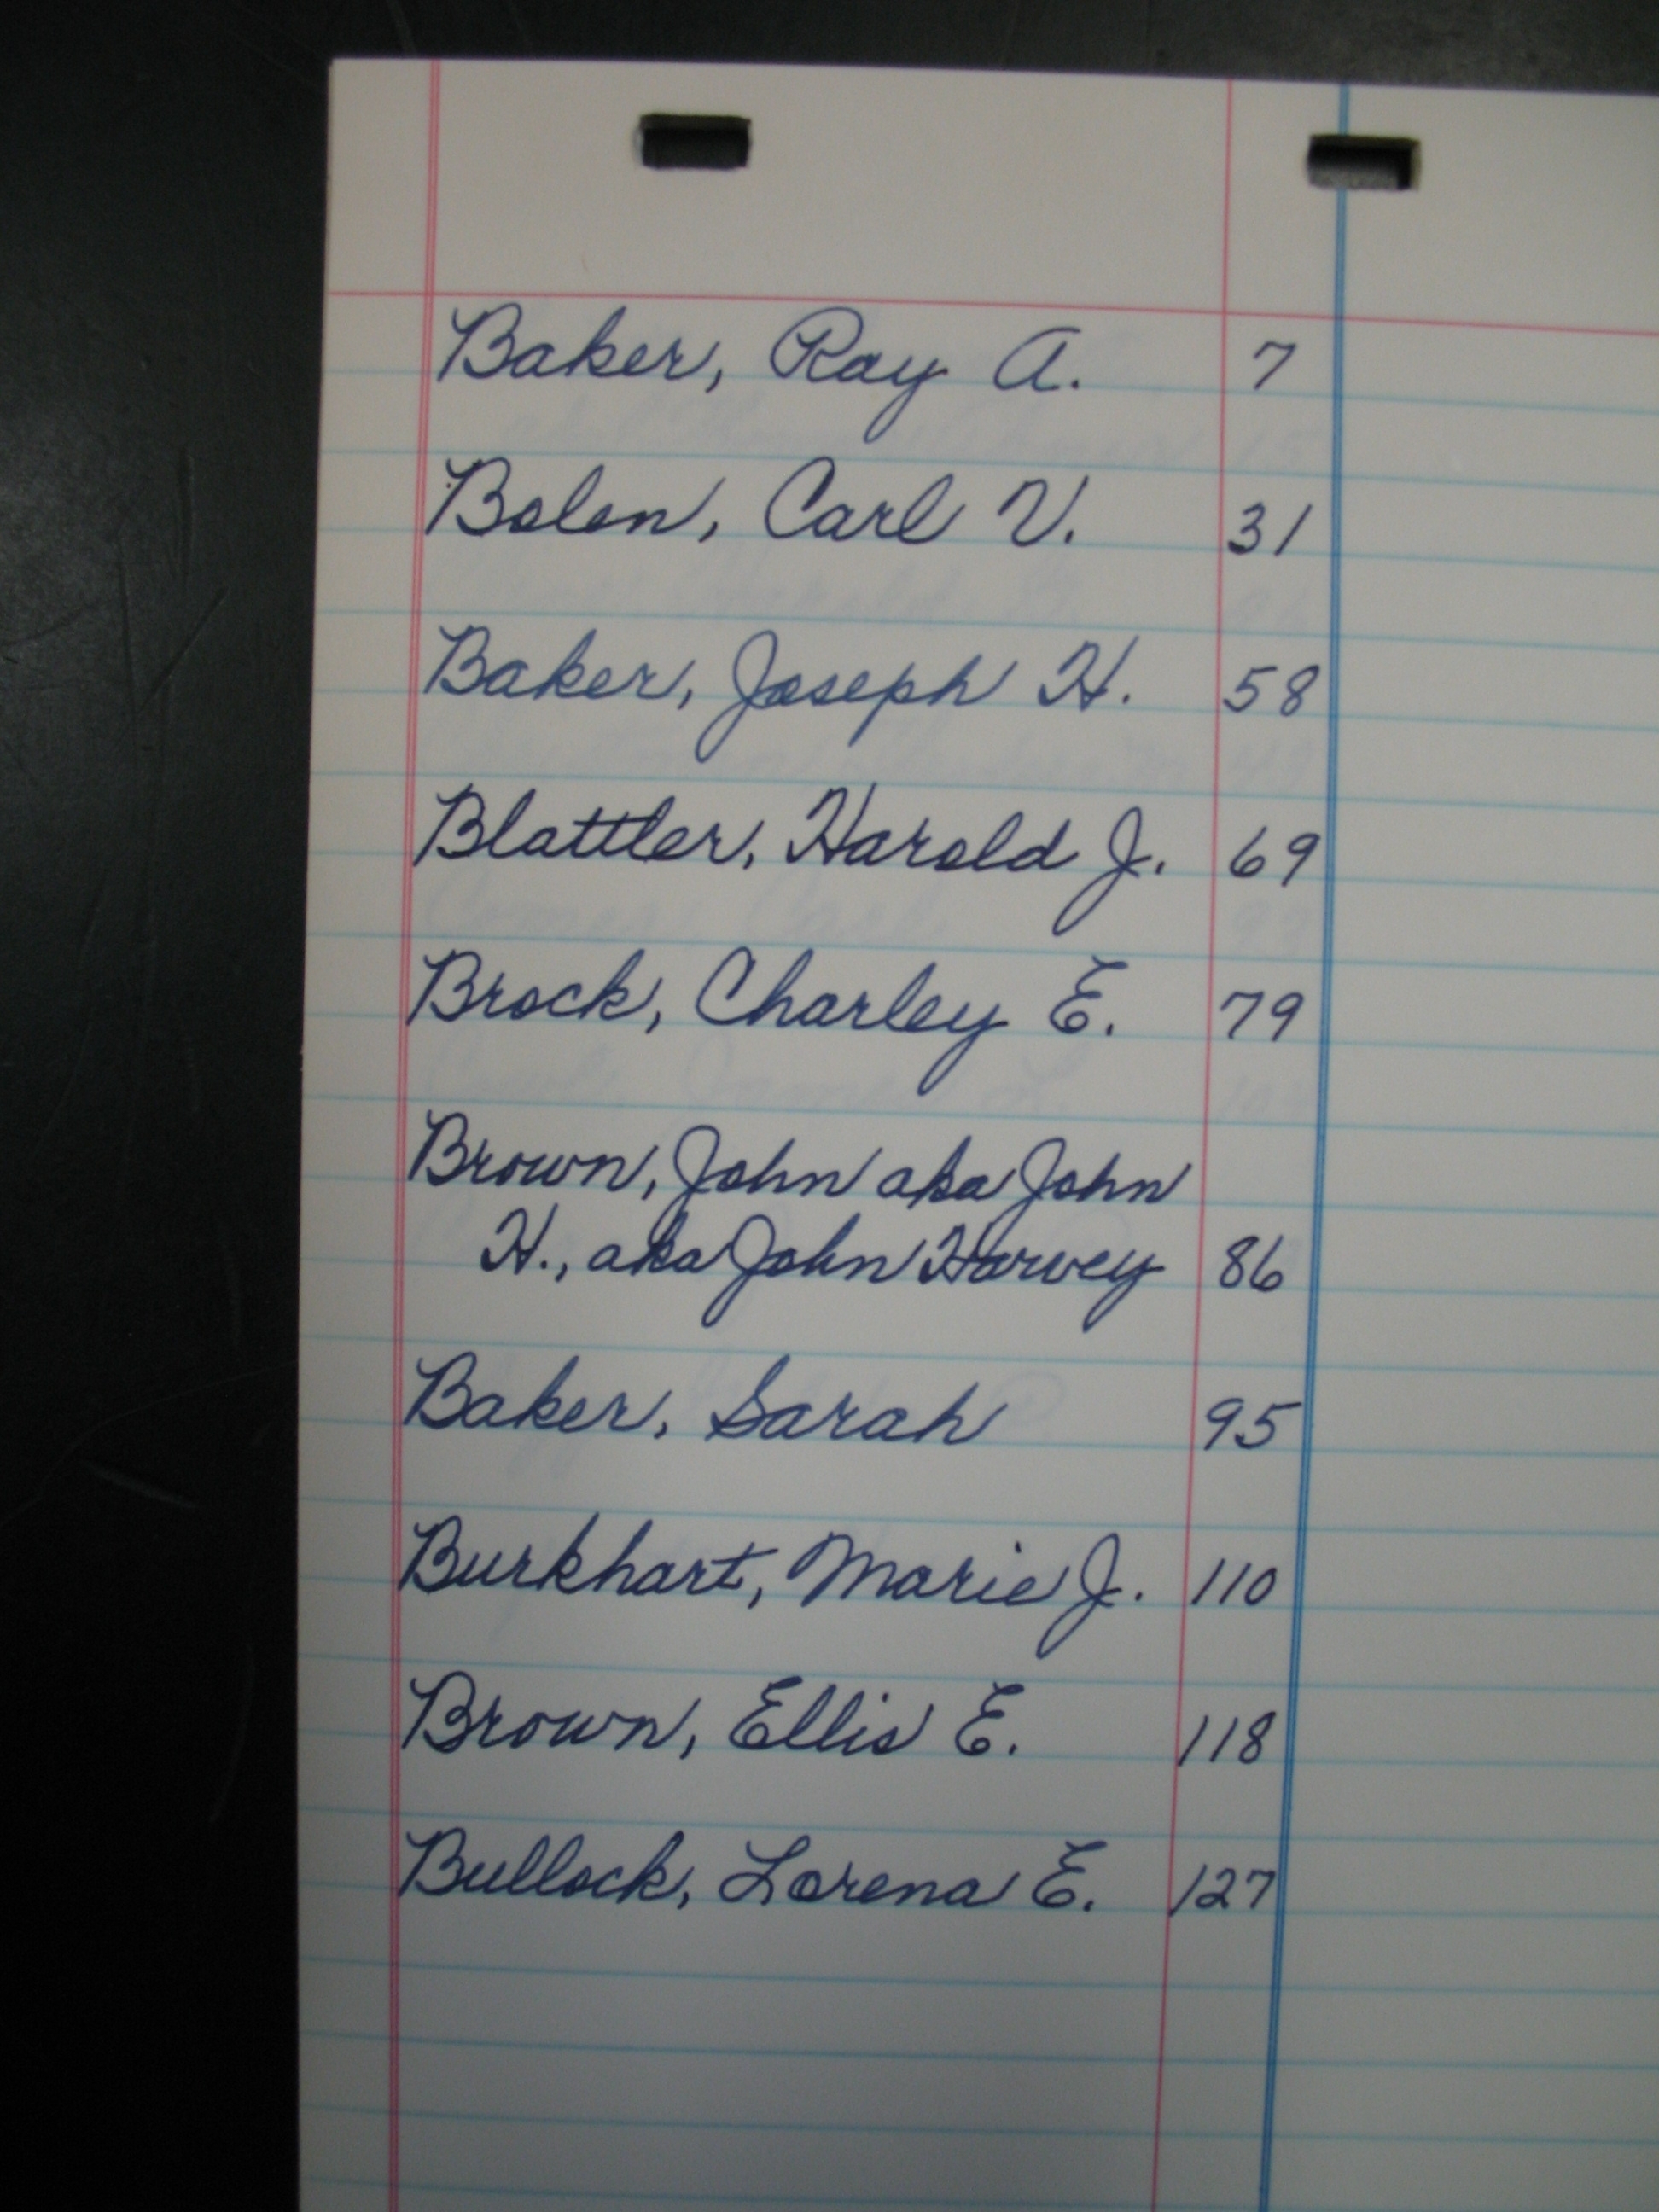 Baker, Ray A. 7
Bolen, Carl V. 31
Baker, Joseph H. 58
Blattler, Harold J. 69
Brock, Charley E. 79
Brown, John aka John
H., aka John Harvey 86
Baker, Sarah 95
Burkhart, Marie J. 110
Brown, Ellis E. 118
Bullock, Lorena E. 127